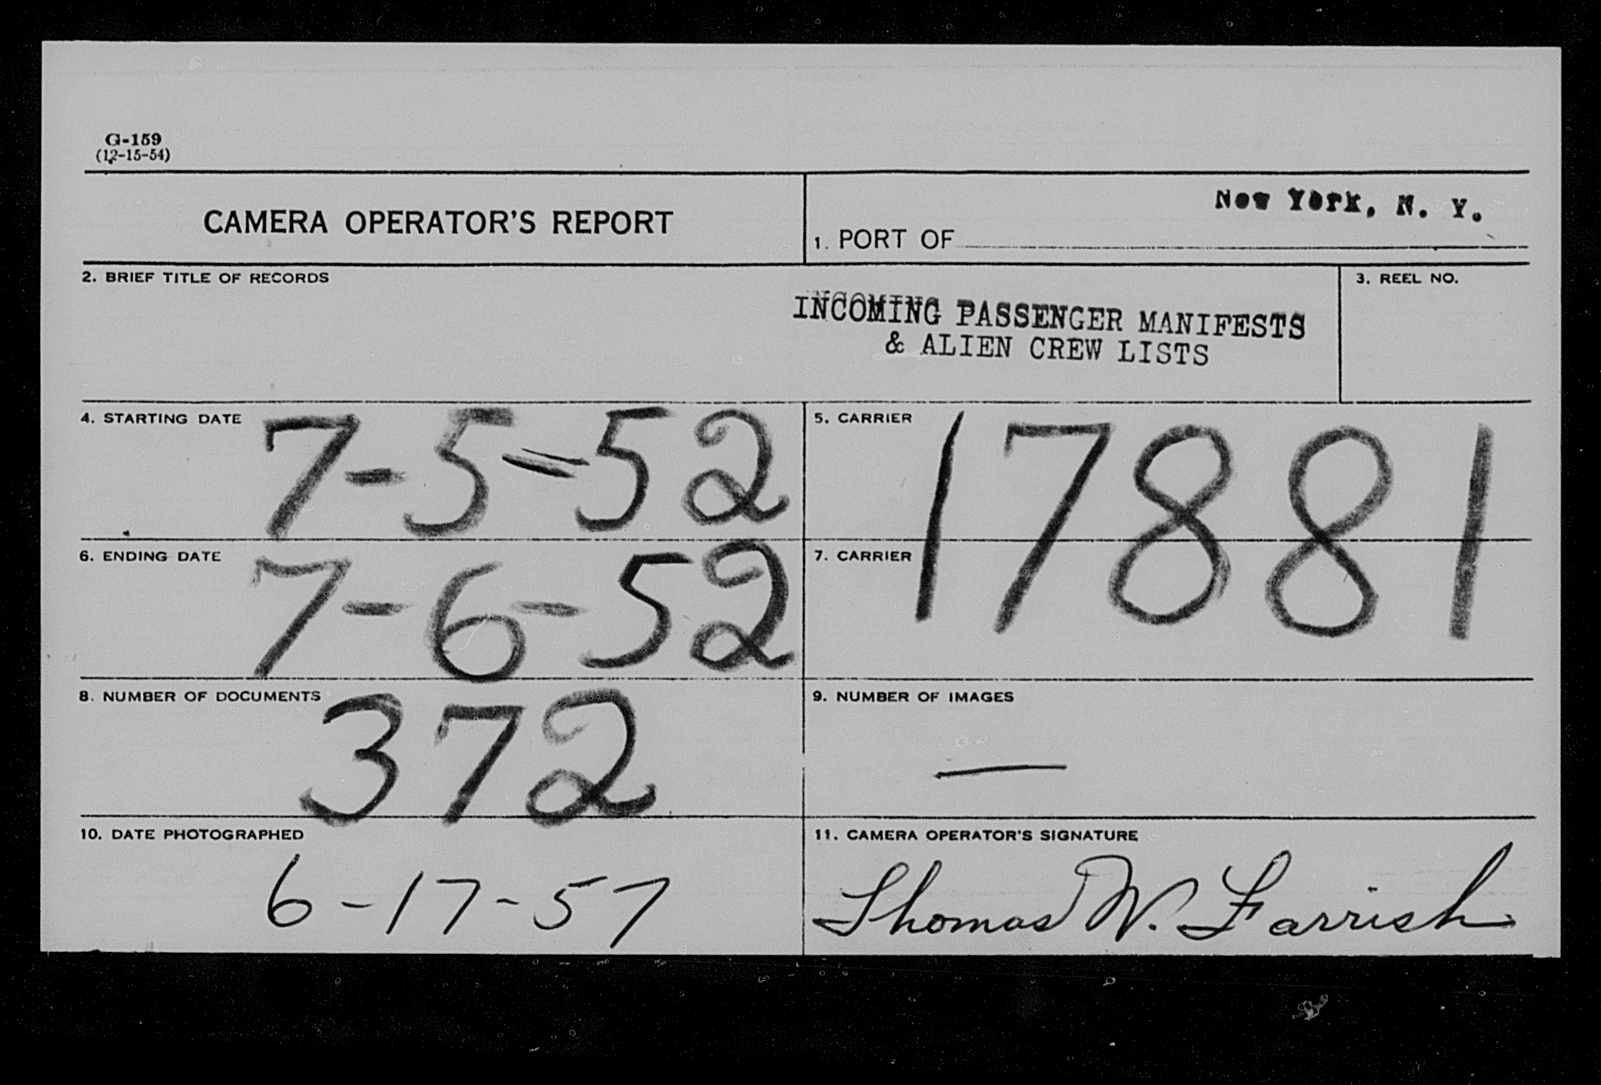 G-159
(12-15-54)
CAMERA OPERATOR'S REPORT
New York, N. Y.
1. PORT OF
2. BRIEF TITLE OF RECORDS
INCOMING PASSENGER MANIFESTS
& ALIEN CREW LISTS
3. REEL NO.
4. STARTING DATE
7-5-52
5. CARRIER
17881
6. ENDING DATE
7-6-52
7. CARRIER
8. NUMBER OF DOCUMENTS
372
9. NUMBER OF IMAGES
—
10. DATE PHOTOGRAPHED
6-17-57
11. CAMERA OPERATOR'S SIGNATURE
Thomas W. Farrish